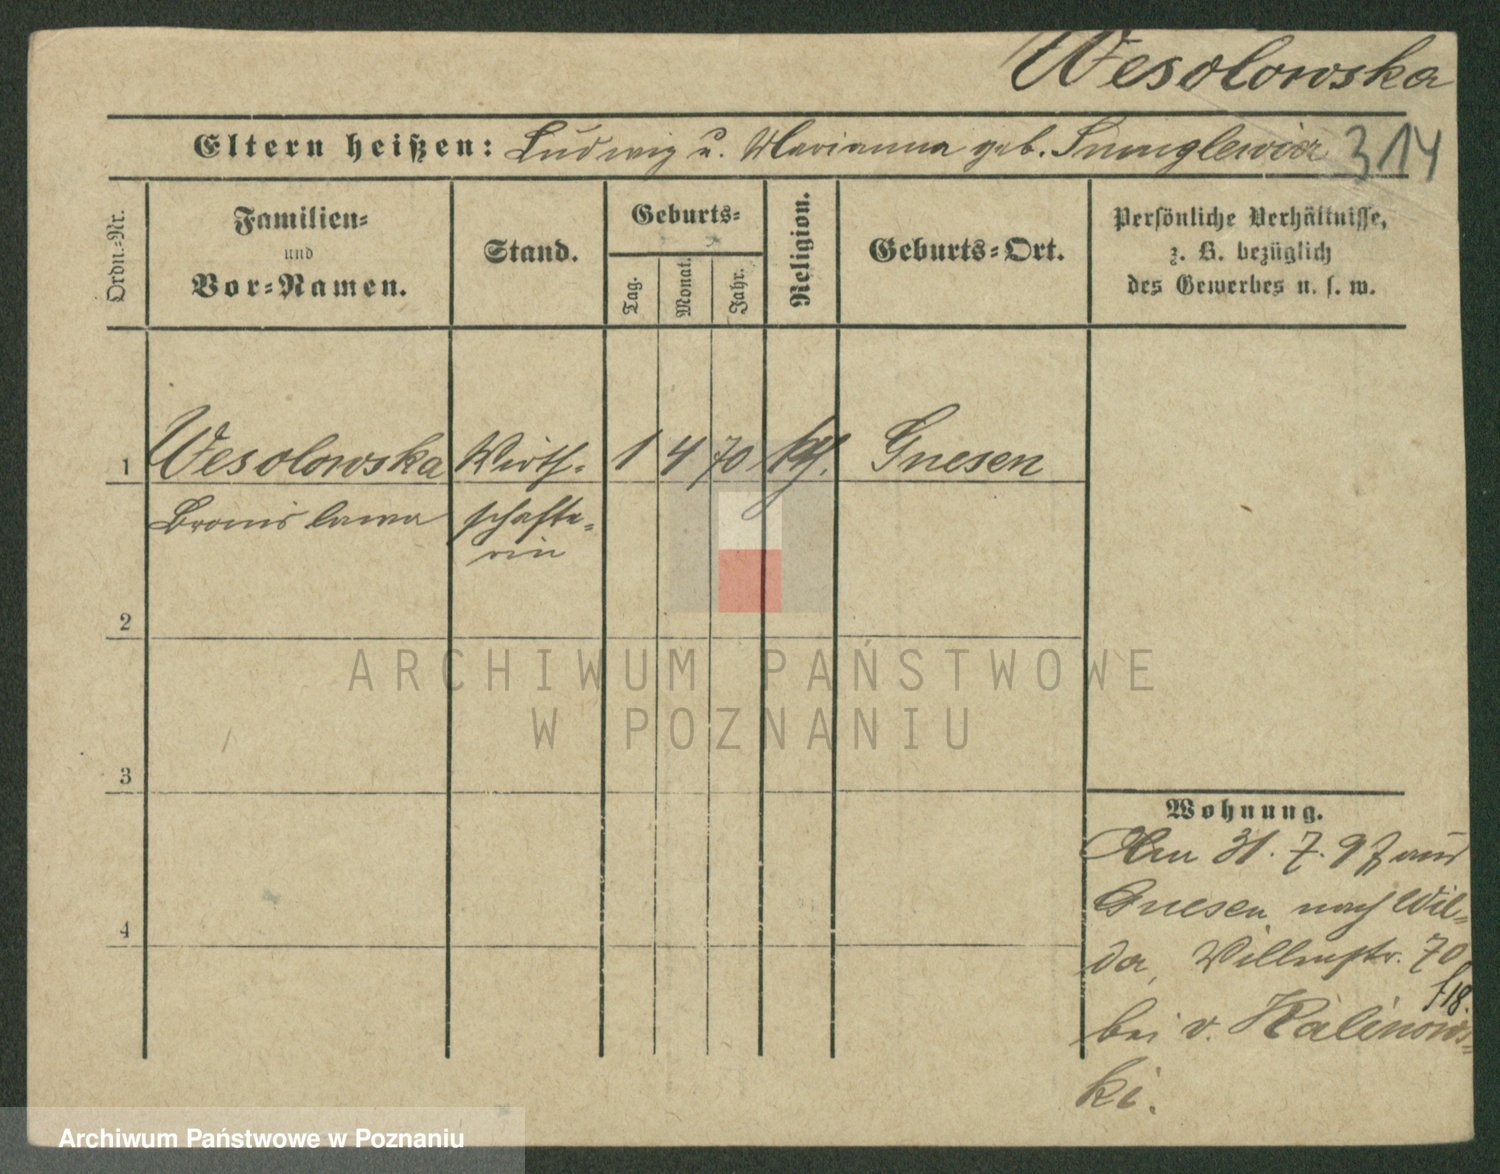 Wesolowska
Eltern heißen: Ludwig u. Marianna geb.
314
Ordn.-Nr.
Familien-
und
Vor-Namen.
Stand.
Geburts-
Tag.
Monat.
Jahr.
Religion.
Geburts-Ort.
Persönliche Verhältnisse,
z. B. bezüglich
des Gewerbes u. s. w.
1 Wesolowska Wirth- 1 4 70 kth. Gnesen
Bronislawa schafte-
rin
2
ARCHIWUM PAŃSTWOWE
W POZNANIU
3
Wohnung.
Am 31. 7. 97 aus
Gnesen nach Wil-
da, Villenstr. 70
f18.
bei v. Kalinows-
ki.
4
Archiwum Państwowe w Poznaniu